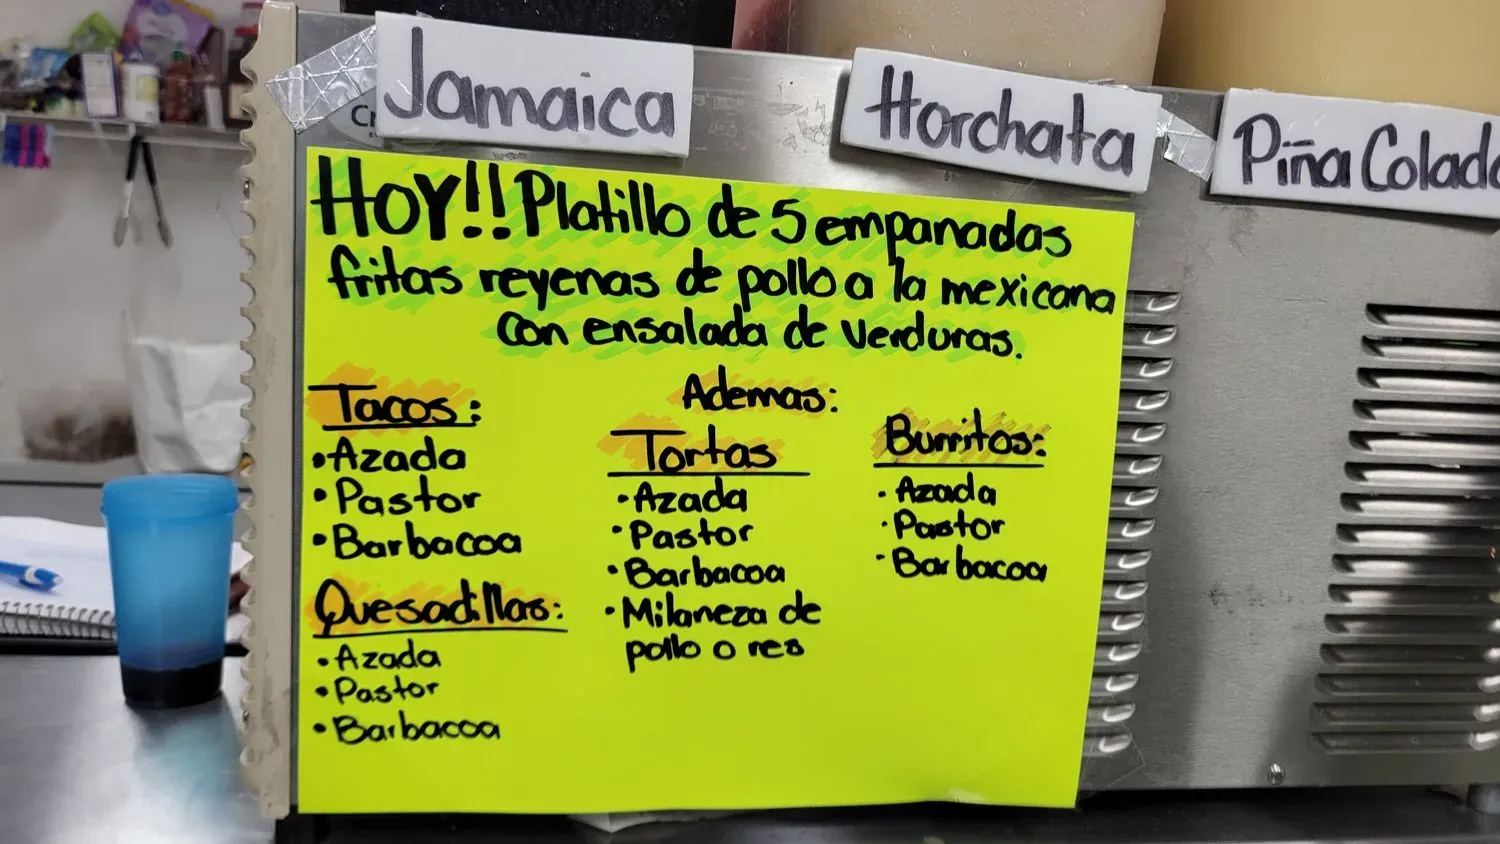 Jamaica
Horchata
Piña Colada
HOY!! Platillo de 5 empanadas
fritas reyenas de pollo a la mexicana
con ensalada de verduras.
Ademas:
Tacos:
•Azada
•Pastor
•Barbacoa
Quesadillas:
•Azada
•Pastor
•Barbacoa
Tortas
•Azada
•Pastor
•Barbacoa
•Milaneza de
pollo o res
Burritos:
•Azada
•Pastor
•Barbacoa